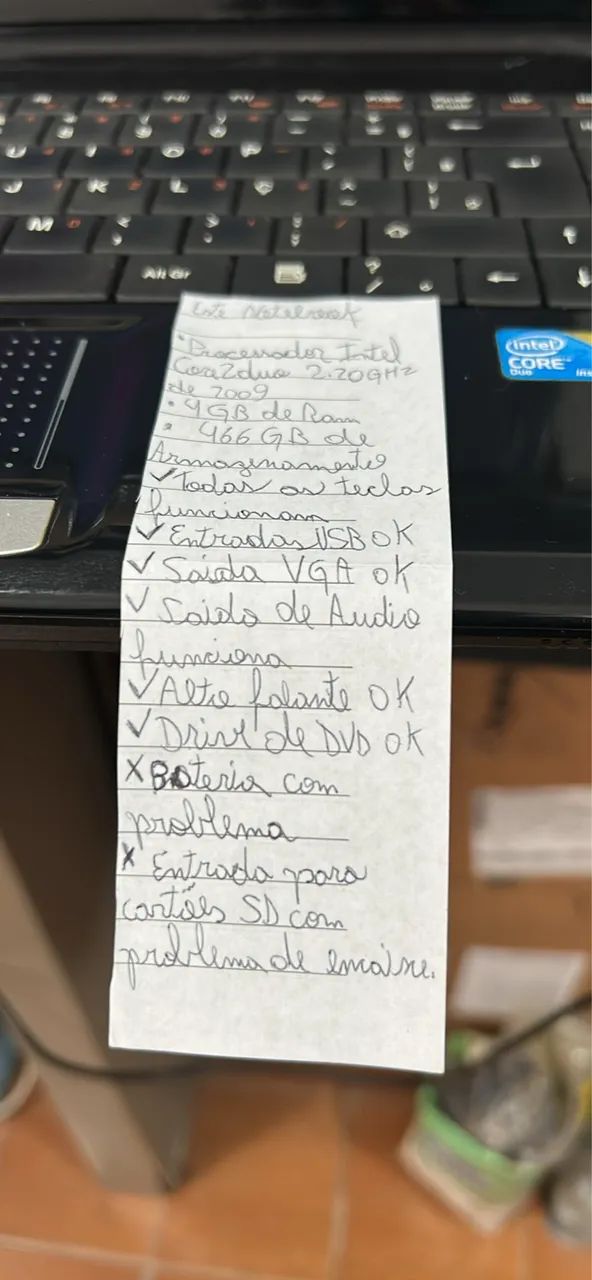 M
Alt Gr
?
/
intel
CORE
Duo
Ins
Este Notebook
• Processador Intel
Cor2duo 2.20GHz
de 2009
• 4GB de Ram
• 466 GB de
Armazenamento
✓ Todas as teclas
funcionam
✓ Entradas USB OK
✓ Saida VGA OK
✓ Saida de Audio
funciona
✓ Alto falante OK
✓ Drive de DVD OK
X Bateria com
problema
X Entrada para
cartões SD com
problema de encaixe.